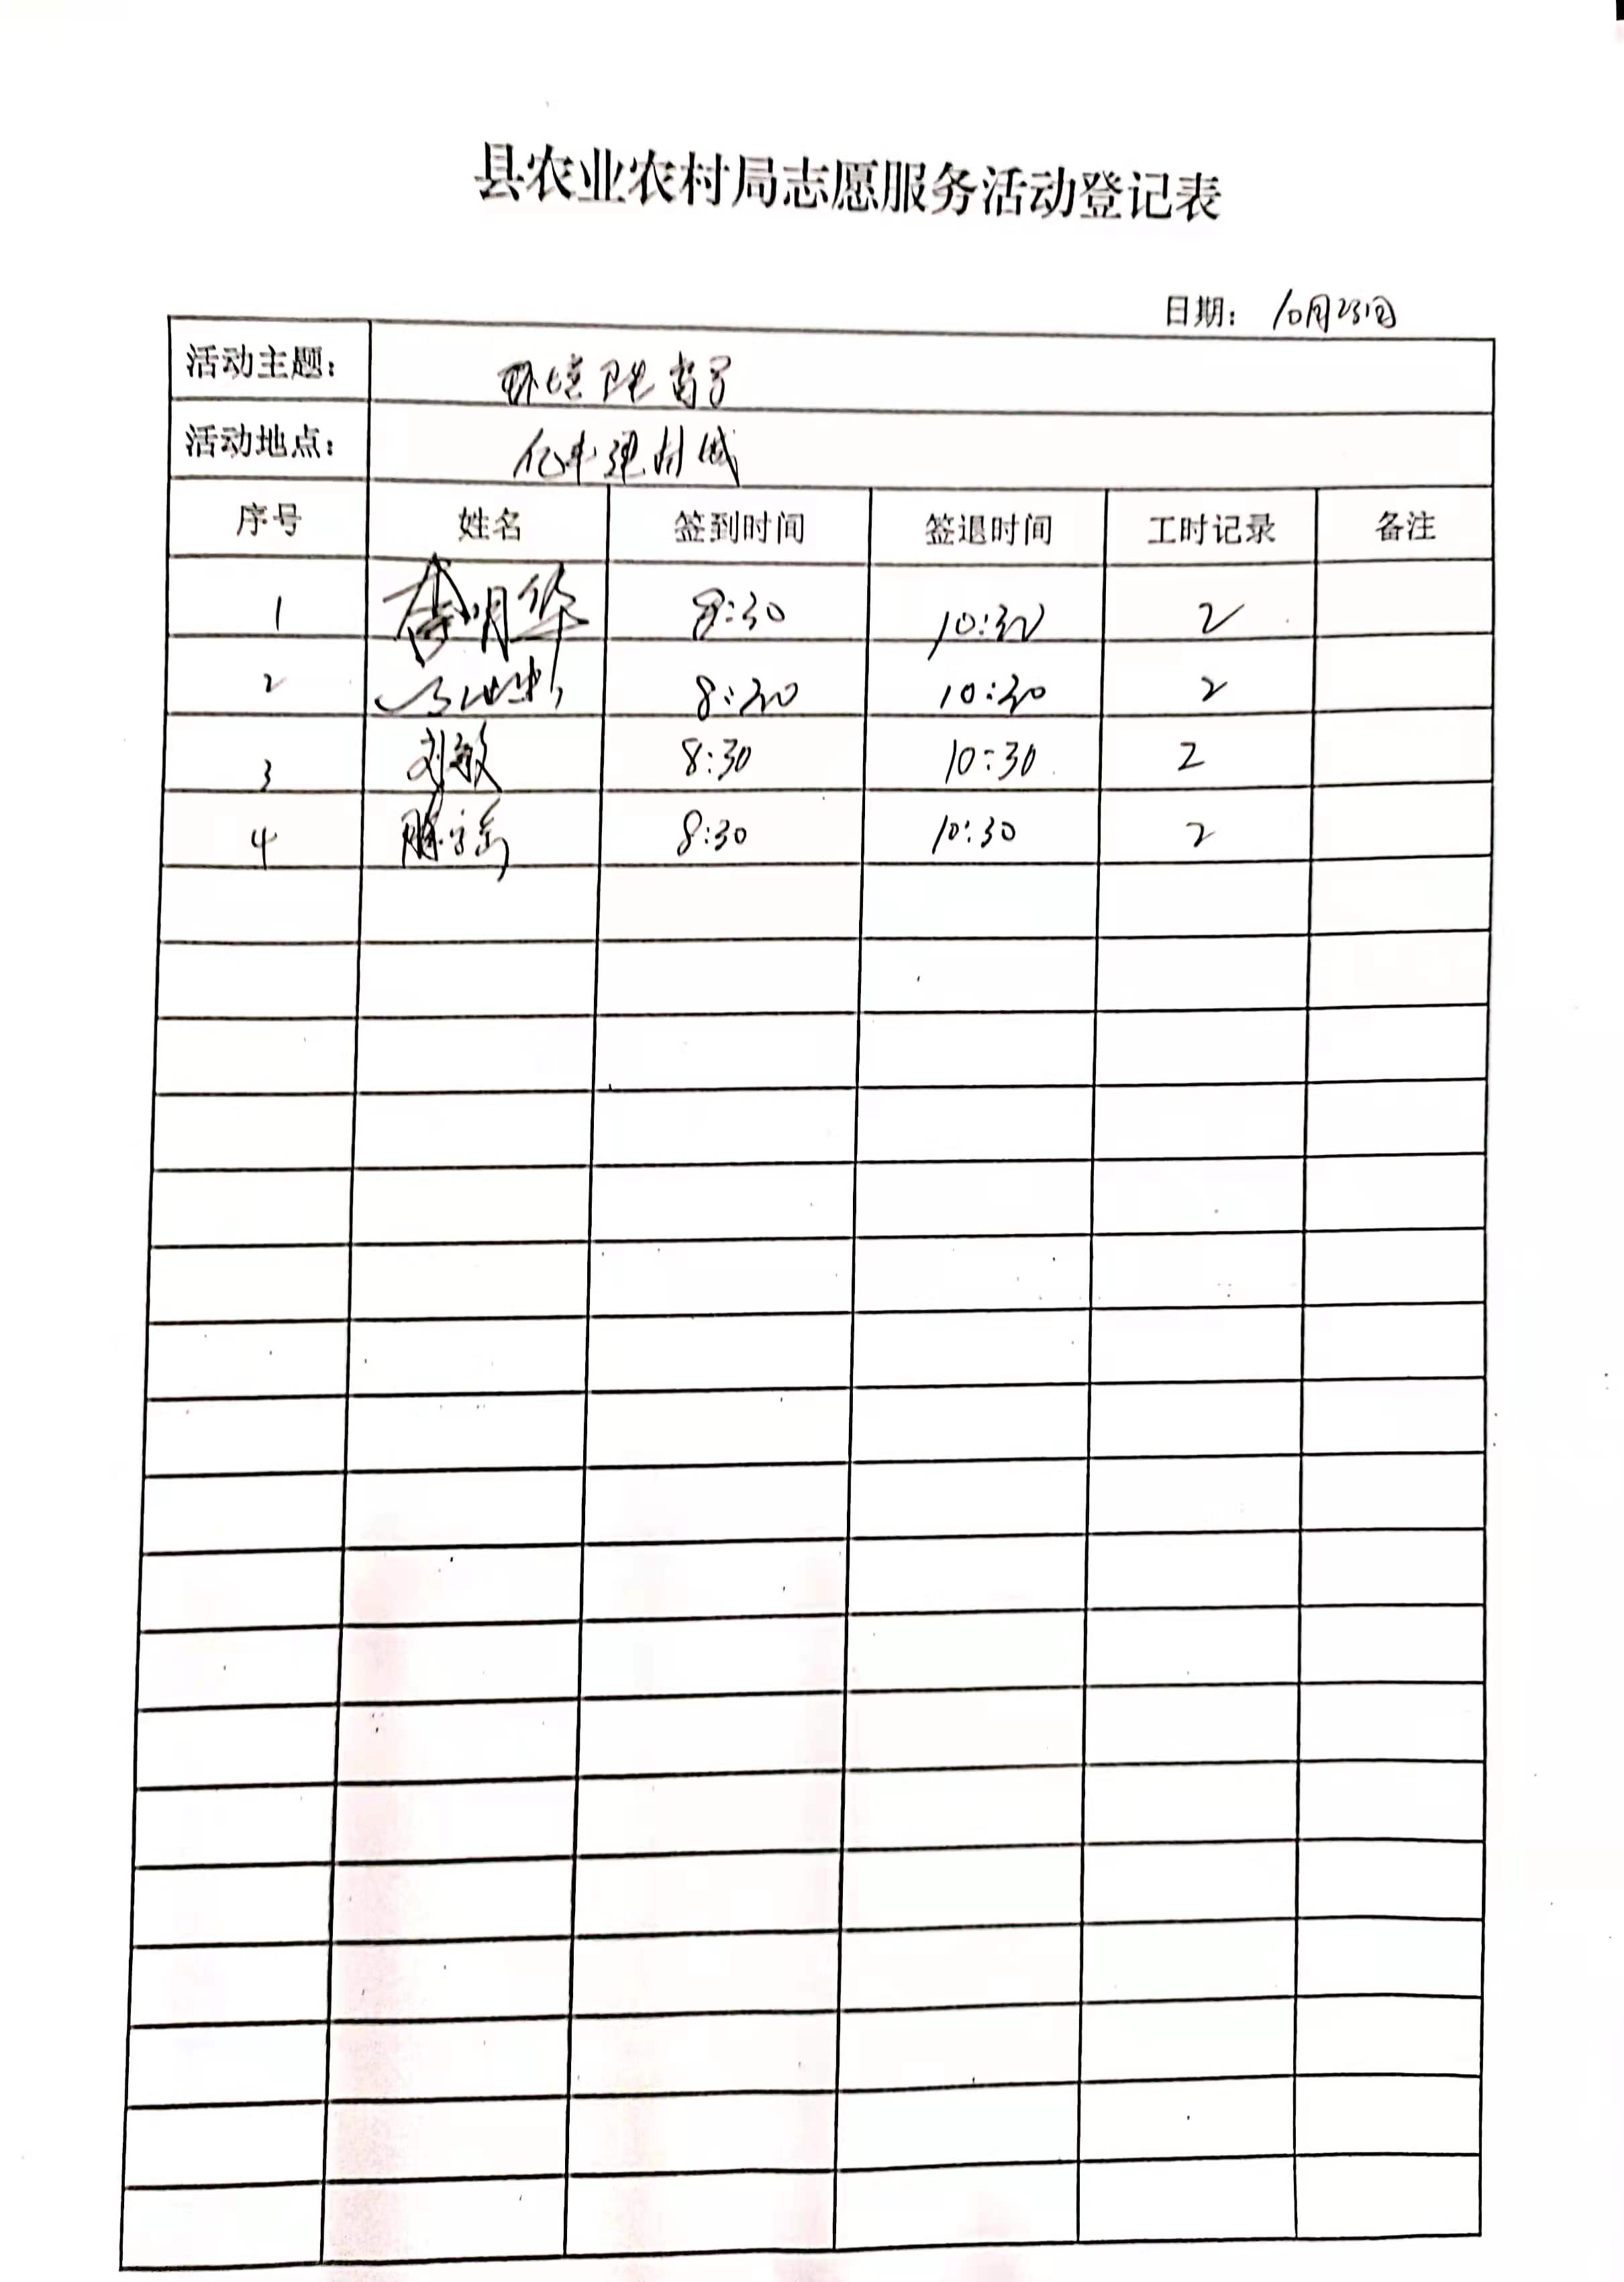 县农业农村局志愿服务活动登记表
日期： 10月23日
活动主题： 环境卫生
活动地点： 亿丰建材城
序号 姓名 签到时间 签退时间 工时记录 备注
1 李明华 8:30 10:30 2
2 8:30 10:30 2
3 刘敏 8:30 10:30 2
4 8:30 10:30 2